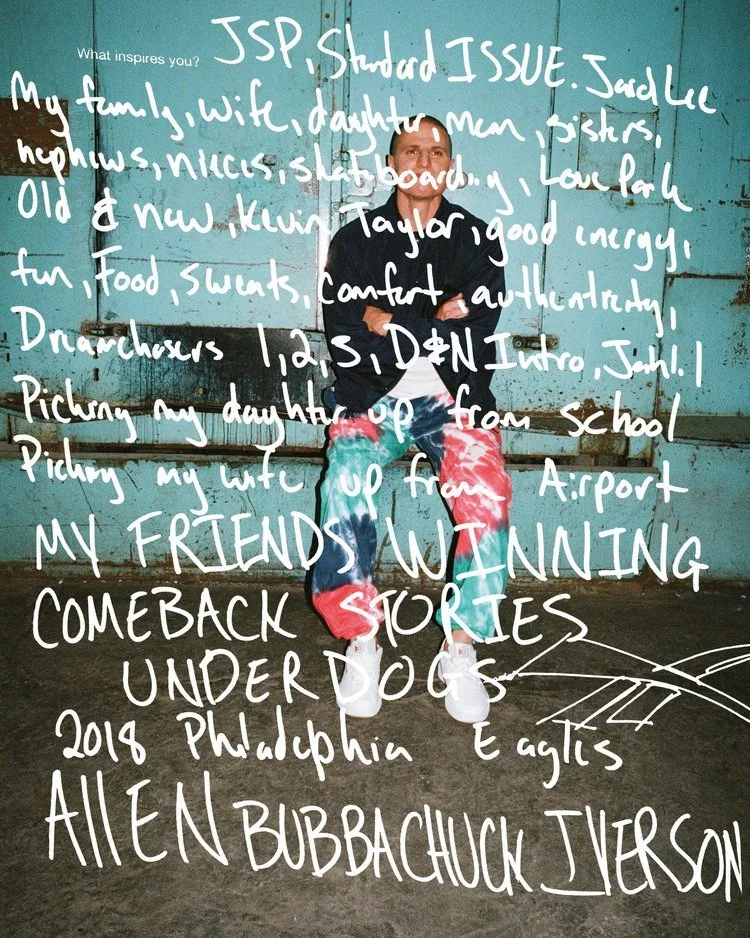 What inspires you? JSP, Standard ISSUE. Jard Lee
My family, wife, daughter, mom, sisters,
nephews, nieces, skateboarding, Love Park
Old & new, Kevin Taylor, good energy,
fun, Food, sweats, comfort, authenticity,
Dreamchasers 1, 2, 3, D&N Intro,
Picking my daughter up from school
Picking my wife up from Airport
MY FRIENDS WINNING
COMEBACK STORIES
UNDERDOGS
2018 Philadelphia Eagles
AllEN BUBBACHUCK IVERSON